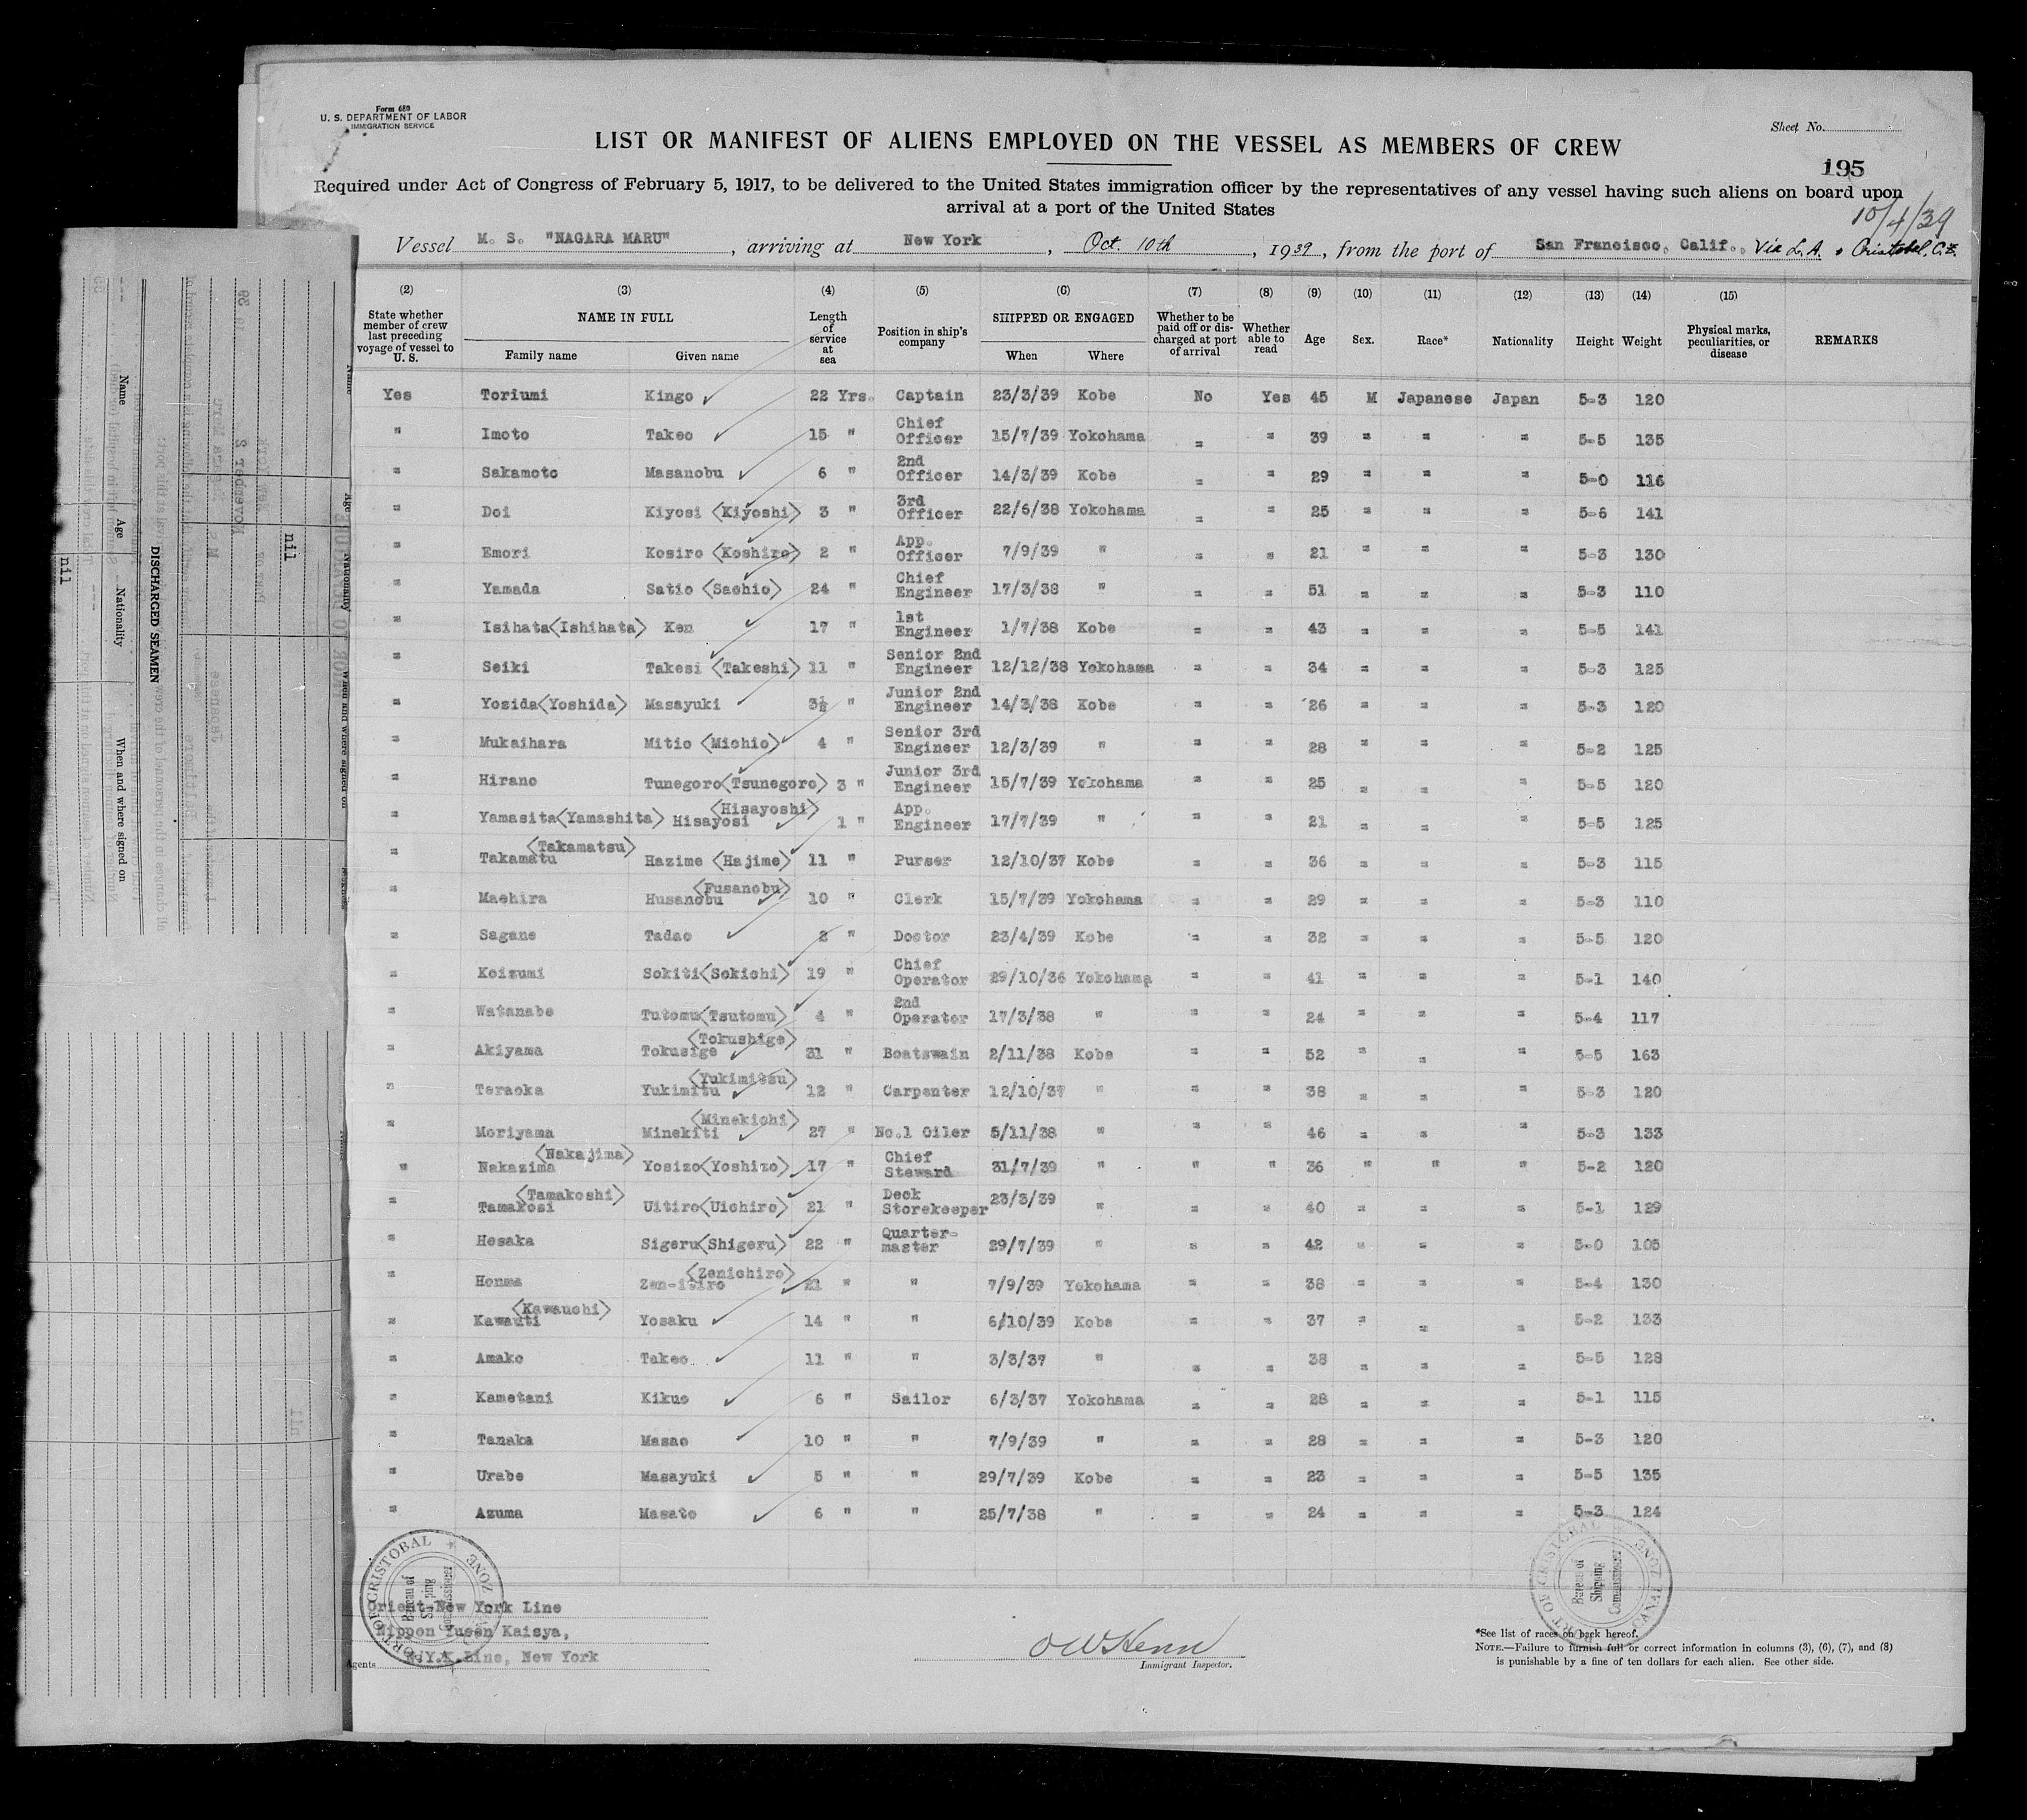 Form 680
U. S. DEPARTMENT OF LABOR
IMMIGRATION SERVICE
Sheet No.
LIST OR MANIFEST OF ALIENS EMPLOYED ON THE VESSEL AS MEMBERS OF CREW
195
Required under Act of Congress of February 5, 1917, to be delivered to the United States immigration officer by the representatives of any vessel having such aliens on board upon
arrival at a port of the United States
10/4/39
Vessel M. S. "NAGARA MARU", arriving at New York, Oct. 10th, 1939, from the port of San Francisco, Calif., Via L.A. & Cristobal, C.Z.
(2) (3) (4) (5) (6) (7) (8) (9) (10) (11) (12) (13) (14) (15)
State whether member of crew last preceding voyage of vessel to U. S. NAME IN FULL Family name Given name Length of service at sea Position in ship's company SHIPPED OR ENGAGED When Where Whether to be paid off or discharged at port of arrival Whether able to read Age Sex. Race* Nationality Height Weight Physical marks, peculiarities, or disease REMARKS
Yes Toriumi Kingo 22 Yrs. Captain 23/3/39 Kobe No Yes 45 M Japanese Japan 5-3 120
" Imoto Takeo 15 " Chief Officer 15/7/39 Yokohama " " 39 " " " 5-5 135
" Sakamoto Masanobu 6 " 2nd Officer 14/3/39 Kobe " " 29 " " " 5-0 116
" Doi Kiyosi <Kiyoshi> 3 " 3rd Officer 22/6/38 Yokohama " " 25 " " " 5-6 141
" Emori Kosiro <Koshiro> 2 " App. Officer 7/9/39 " " " 21 " " " 5-3 130
" Yamada Satio <Sachio> 24 " Chief Engineer 17/3/38 " " " 51 " " " 5-3 110
" Isihata <Ishihata> Ken 17 " 1st Engineer 1/7/38 Kobe " " 43 " " " 5-5 141
" Seiki Takesi <Takeshi> 11 " Senior 2nd Engineer 12/12/38 Yokohama " " 34 " " " 5-3 125
" Yosida <Yoshida> Masayuki 3½ " Junior 2nd Engineer 14/3/38 Kobe " " 26 " " " 5-3 120
" Mukaihara Mitio <Michio> 4 " Senior 3rd Engineer 12/3/39 " " " 28 " " " 5-2 125
" Hirano Tunegoro <Tsunegoro> 3 " Junior 3rd Engineer 15/7/39 Yokohama " " 25 " " " 5-5 120
" Yamasita <Yamashita> Hisayosi <Hisayoshi> 1 " App. Engineer 17/7/39 " " " 21 " " " 5-5 125
" Takamatu <Takamatsu> Hazime <Hajime> 11 " Purser 12/10/37 Kobe " " 36 " " " 5-3 115
" Maehira Husanobu <Fusanobu> 10 " Clerk 15/7/39 Yokohama " " 29 " " " 5-3 110
" Sagane Tadao 2 " Doctor 23/4/39 Kobe " " 32 " " " 5-5 120
" Koizumi Sokiti <Sokichi> 19 " Chief Operator 29/10/36 Yokohama " " 41 " " " 5-1 140
" Watanabe Tutomu <Tsutomu> 4 " 2nd Operator 17/3/38 " " " 24 " " " 5-4 117
" Akiyama Tokusige <Tokushige> 31 " Boatswain 2/11/38 Kobe " " 52 " " " 5-5 163
" Teraoka Yukimitu <Yukimitsu> 12 " Carpenter 12/10/37 " " " 38 " " " 5-3 120
" Moriyama Minekiti <Minekichi> 27 " No.1 Oiler 5/11/38 " " " 46 " " " 5-3 133
" Nakazima <Nakajima> Yosizo <Yoshizo> 17 " Chief Steward 31/7/39 " " " 36 " " " 5-2 120
" Tamakosi <Tamakoshi> Uitiro <Uichiro> 21 " Deck Storekeeper 23/3/39 " " " 40 " " " 5-1 129
" Hosaka Sigeru <Shigeru> 22 " Quarter-master 29/7/39 " " " 42 " " " 5-0 105
" Honma Zen-itiro <Zenichiro> 21 " " 7/9/39 Yokohama " " 38 " " " 5-4 130
" Kawauti <Kawauchi> Yosaku 14 " " 6/10/39 Kobe " " 37 " " " 5-2 133
" Amako Takeo 11 " " 3/3/37 " " " 38 " " " 5-5 128
" Kametani Kikuo 6 " Sailor 6/3/37 Yokohama " " 28 " " " 5-1 115
" Tanaka Masao 10 " " 7/9/39 " " " 28 " " " 5-3 120
" Urabe Masayuki 5 " " 29/7/39 Kobe " " 23 " " " 5-5 135
" Azuma Masato 6 " " 25/7/38 " " " 24 " " " 5-3 124
PORT OF CRISTOBAL CANAL ZONE
Bureau of Shipping Commissioner
Orient-New York Line
Nippon Yusen Kaisya,
N.Y.K. Line, New York
Agents
Immigrant Inspector.
PORT OF CRISTOBAL CANAL ZONE
Bureau of Shipping Commissioner
*See list of races on back hereof.
NOTE.—Failure to furnish full or correct information in columns (3), (6), (7), and (8)
is punishable by a fine of ten dollars for each alien. See other side.
DISCHARGED SEAMEN
Name Age Nationality When and where signed on
nil
nil